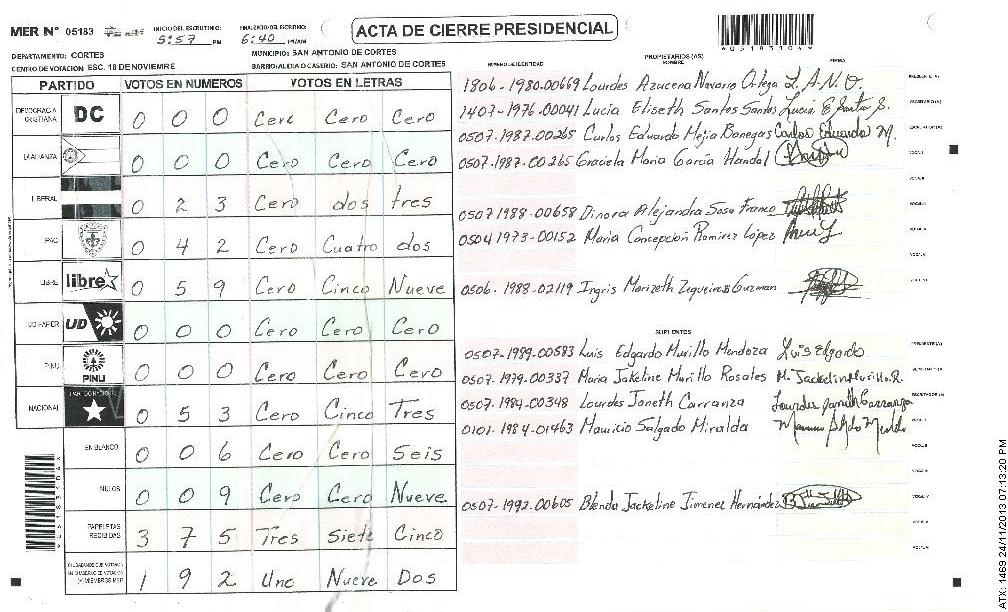 MER N° 05183
INICIO DEL ESCRUTINIO: 5:57 PM
FINALIZACIÓN DEL ESCRUTINIO: 6:40 PM/AM
ACTA DE CIERRE PRESIDENCIAL
DEPARTAMENTO: CORTES
MUNICIPIO: SAN ANTONIO DE CORTES
CENTRO DE VOTACION: ESC. 18 DE NOVIEMBRE
BARRIO/ALDEA O CASERIO: SAN ANTONIO DE CORTES
PARTIDO VOTOS EN NUMEROS VOTOS EN LETRAS
DEMOCRACIA CRISTIANA DC 0 0 0 Cero Cero Cero
LA ALIANZA 0 0 0 Cero Cero Cero
LIBERAL 0 2 3 Cero dos tres
PAC 0 4 2 Cero Cuatro dos
LIBRE libre 0 5 9 Cero Cinco Nueve
UD FAPER UD 0 0 0 Cero Cero Cero
PINU PINU 0 0 0 Cero Cero Cero
NACIONAL PARTIDO NACIONAL 0 5 3 Cero Cinco Tres
EN BLANCO 0 0 6 Cero Cero Seis
NULOS 0 0 9 Cero Cero Nueve
PAPELETAS RECIBIDAS 3 7 5 Tres Siete Cinco
1 9 2 Uno Nueve Dos
NUMERO DE IDENTIDAD
PROPIETARIOS (AS)
NOMBRE
FIRMA
1806-1980-00669 Lourdes Azucena Navarro Ortega L.A.N.O. PRESIDENTE (A)
1407-1976-00041 Lucia Eliseth Santos Santos Lucia E Santos S. SECRETARIO (A)
0507-1987-00265 Carlos Eduardo Mejia Banegas Carlos Eduardo M. ESCRUTADOR (A)
0507-1987-00265 Graciela Maria García Handal VOCAL I
0507-1988-00658 Dinora Alejandra Sosa Franco
0504 1973-00152 Maria Concepción Ramirez López
0506-1988-02119 Ingris Marizeth
SUPLENTES
0507-1989-00583 Luis Edgardo Murillo Mendoza Luis Edgardo PRESIDENTE (A)
0507-1979-00337 Maria Jakeline Murillo Rosales M. Jackelin Murillo R. SECRETARIO (A)
0507-1984-00348 Lourdes Janeth Carranza Lourdes Janeth Carranza ESCRUTADOR (A)
0101-1984-01463 Mauricio Salgado Miralda
0507-1992-00605 Blenda Jackeline Jimenez Hernández
ATX: 1469 24/11/2013 07:13:20 PM